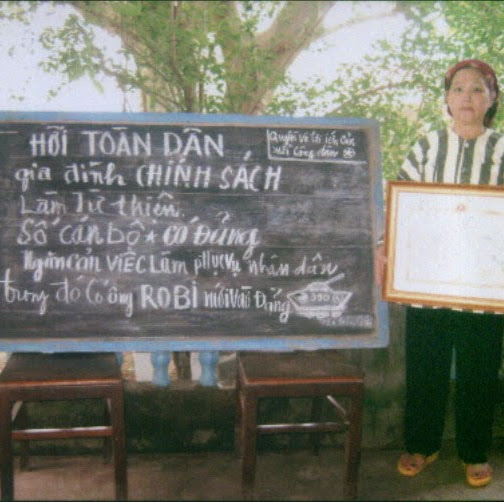 HỠI TOÀN DÂN
Quyền Và lợi ích Của
Mỗi Công dân
gia đình CHÍNH SÁCH
Làm Từ thiện
Số cán bộ ★ có Đảng
Ngăn cản VIỆC LÀM phục vụ nhân dân
trong đó Có ông RO BI mới vào Đảng